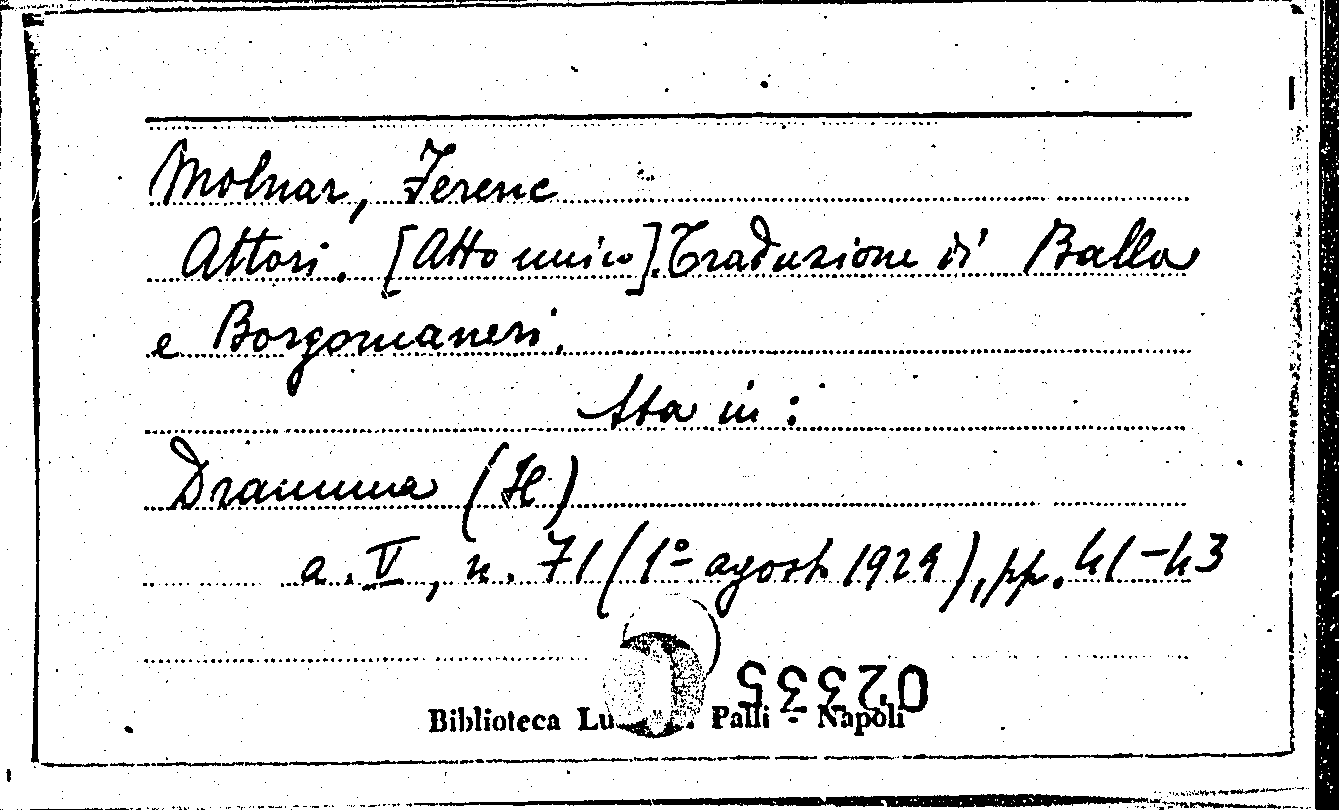 Molnar, Ferenc
Attori. [Atto unico]. Traduzione di Balla
e Borgomaneri.
Sta in:
Dramma (Il)
a. V, n. 71 (1º agosto 1929), pp. 41-43
02335
Biblioteca Palli - Napoli